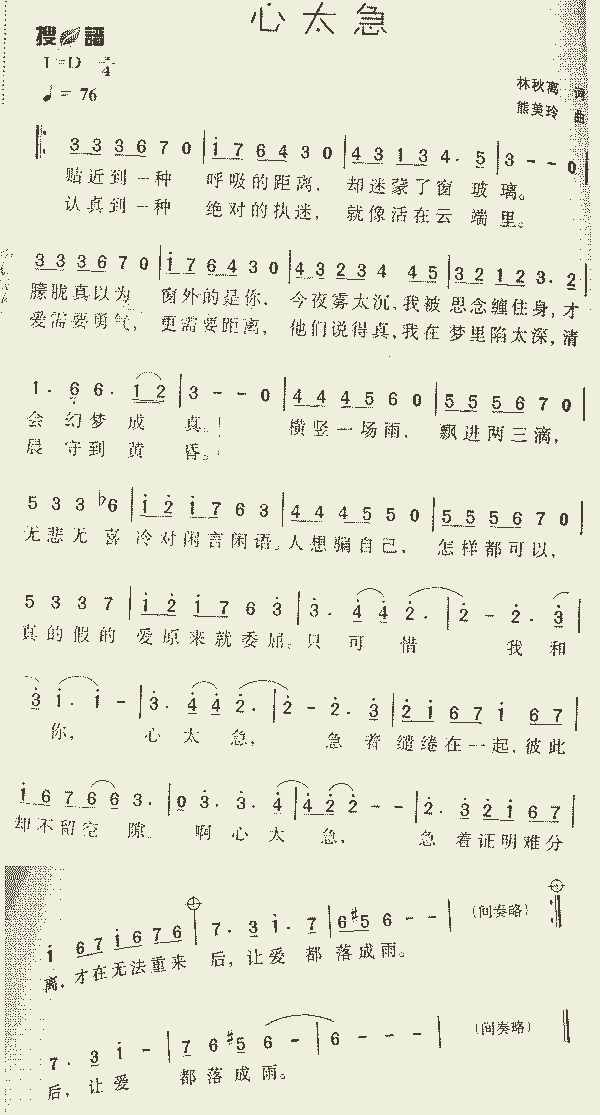 心太急
搜谱
1=D 4/4
♩= 76
林秋离 词
熊美玲 曲
3 3 3 6 7 0 | i 7 6 4 3 0 | 4 3 1 3 4 . 5 | 3 - - 0 |
贴近到一种 呼吸的距离, 却迷蒙了窗 玻 璃。
认真到一种 绝对的执迷, 就像活在云 端 里。
3 3 3 6 7 0 | i 7 6 4 3 0 | 4 3 2 3 4 4 5 | 3 2 1 2 3 . 2 |
朦胧真以为 窗外的是你, 今夜雾太沉,我被 思念缠住身,才
爱需要勇气, 更需要距离, 他们说得真,我在 梦里陷太深,清
1 . 6 6 . 1 2 | 3 - - 0 | 4 4 4 5 6 0 | 5 5 5 6 7 0 |
会 幻 梦 成 真。 横竖一场雨, 飘进两三滴,
晨 守 到 黄 昏。
5 3 3 ♭6 | i 2 i 7 6 3 | 4 4 4 5 5 0 | 5 5 5 6 7 0 |
无悲无喜 冷对闲言闲语。人想骗自己, 怎样都可以,
5 3 3 7 | i 2 i 7 6 3 | 3 . 4 4 2 . | 2 - 2 . 3
真的假的 爱原来就委屈。只 可 惜 我 和
3 i . i - | 3 . 4 4 2 . | 2 - 2 . 3 | 2 i 6 7 i 6 7 |
你, 心 太 急, 急 着 缱绻在一起,彼此
i 6 7 6 6 3 . | 0 3 . 3 . 4 | 4 2 2 - - | 2 . 3 2 i 6 7 |
却不留空 隙。 啊心 太 急, 急 着证明难分
i 6 7 i 6 7 6 | 7 . 3 i . 7 | 6 ♯5 6 - - | (间奏略) :‖
离,才在无法重来 后,让爱 都 落成雨。
7 . 3 i - | 7 6 ♯5 6 - | 6 - - - | (间奏略) ‖
后,让 爱 都落成雨。